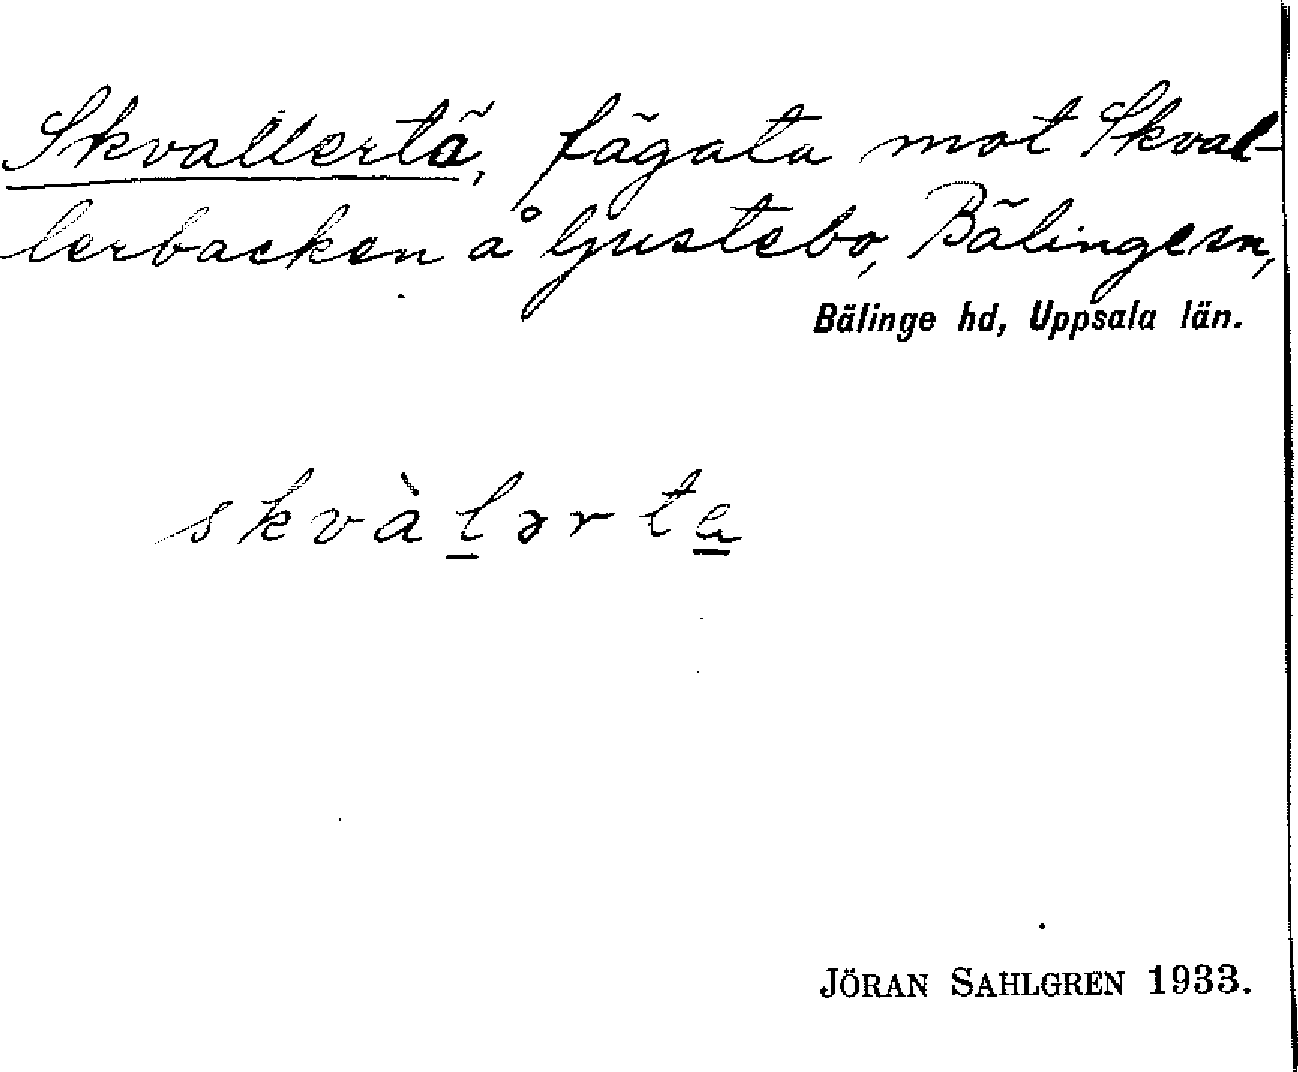 Skvallertä, fägata mot Skval-
lerbacken å ljustebo, Bälinge sn,
Bälinge hd, Uppsala län.
skvàl̲ərta̲
JÖRAN SAHLGREN 1933.